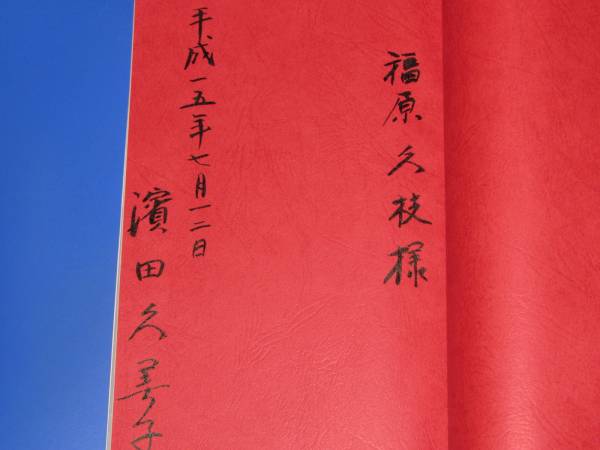 福原久枝様
平成一五年七月一二日
濱田久美子